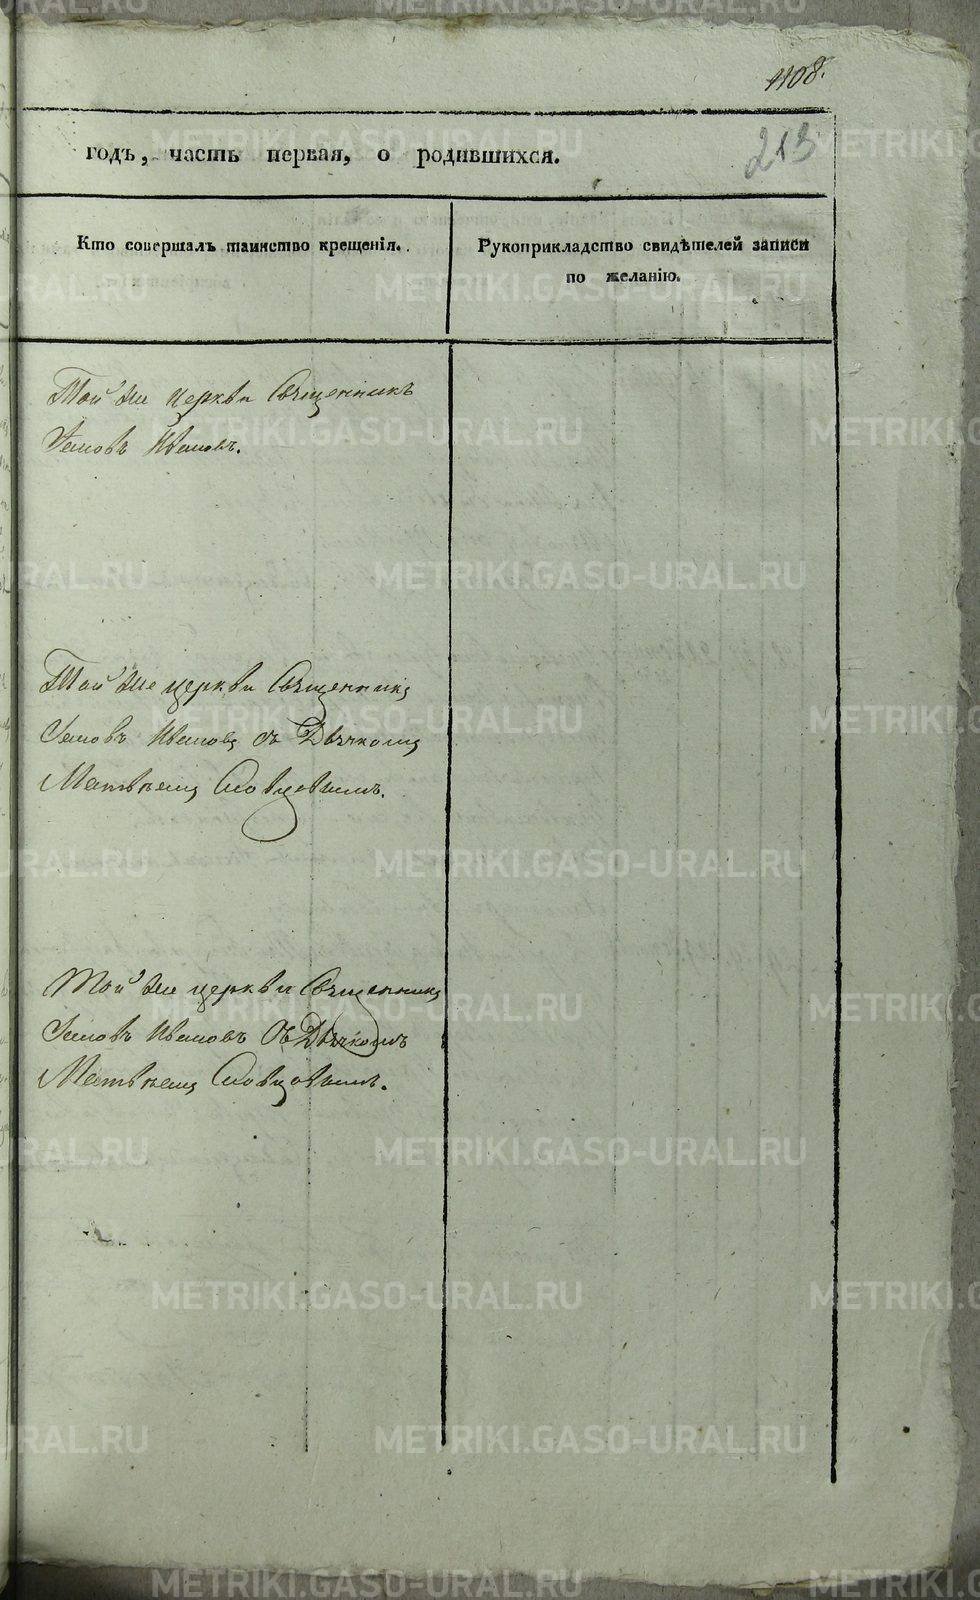 1108.
213
годъ, часть первая, о родившихся.
Кто совершалъ таинство крещенія.
Рукоприкладство свидѣтелей записи
по желанію.
Той же церкви Священникъ
Іаковъ Ивановъ.
Той же церкви Священникъ
Іаковъ Ивановъ съ Дьячкомъ
Матвѣемъ Словцовымъ.
Той же церкви Священникъ
Іаковъ Ивановъ съ Дьячкомъ
Матвѣемъ Словцовымъ.
METRIKI.GASO-URAL.RU